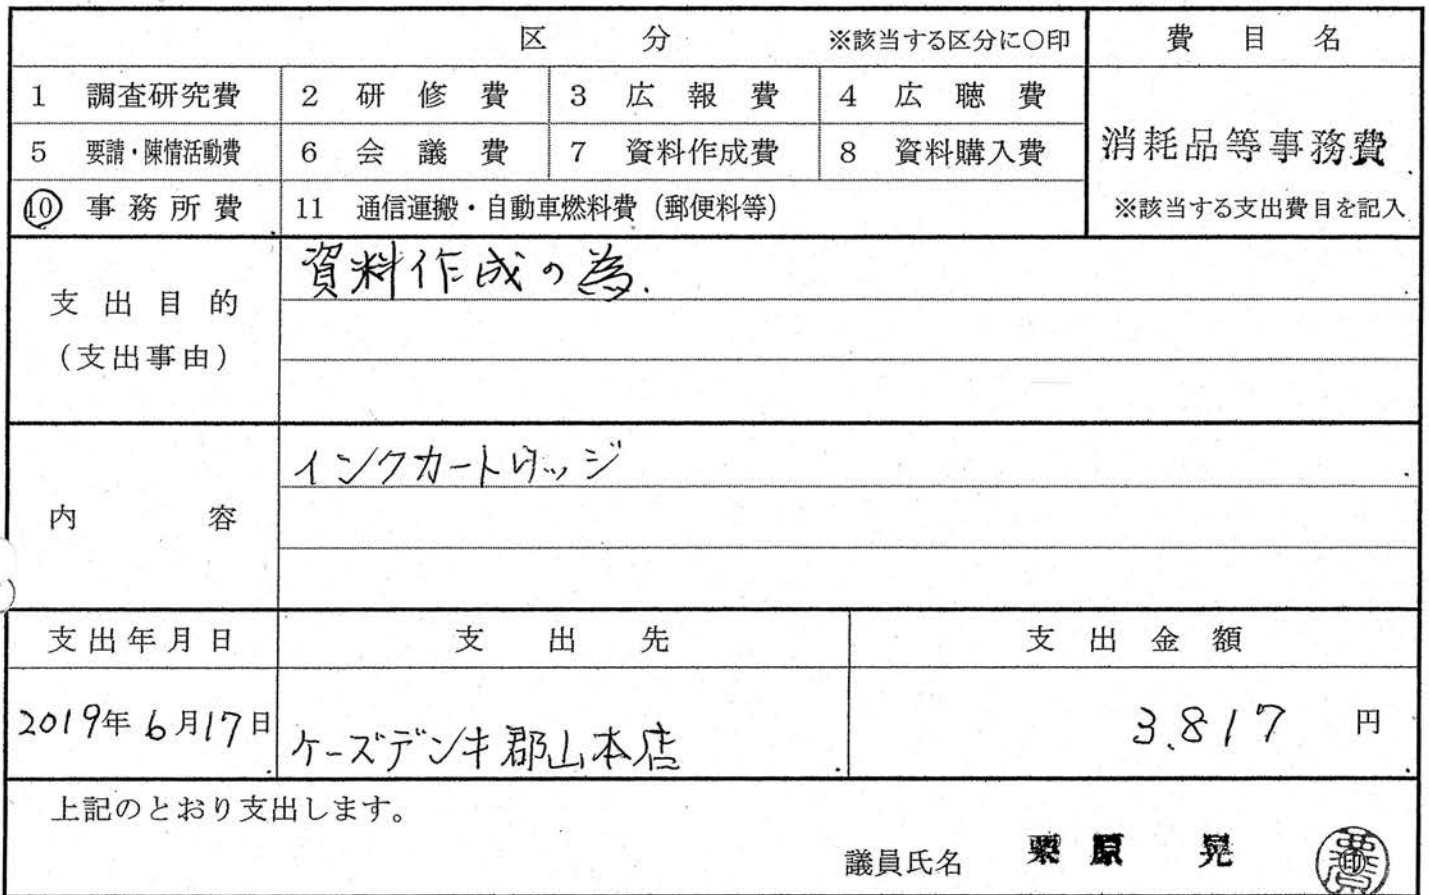 区 分 ※該当する区分に○印 費目名
1 調査研究費 2 研修費 3 広報費 4 広聴費
5 要請・陳情活動費 6 会議費 7 資料作成費 8 資料購入費
消耗品等事務費
⑩ 事務所費 11 通信運搬・自動車燃料費（郵便料等）
※該当する支出費目を記入
支出目的
（支出事由）
資料作成の為.
内 容
インクカートリッジ
支出年月日 支出先 支出金額
2019年6月17日 ケーズデンキ郡山本店 3.817 円
上記のとおり支出します。
議員氏名 栗原 晃 印